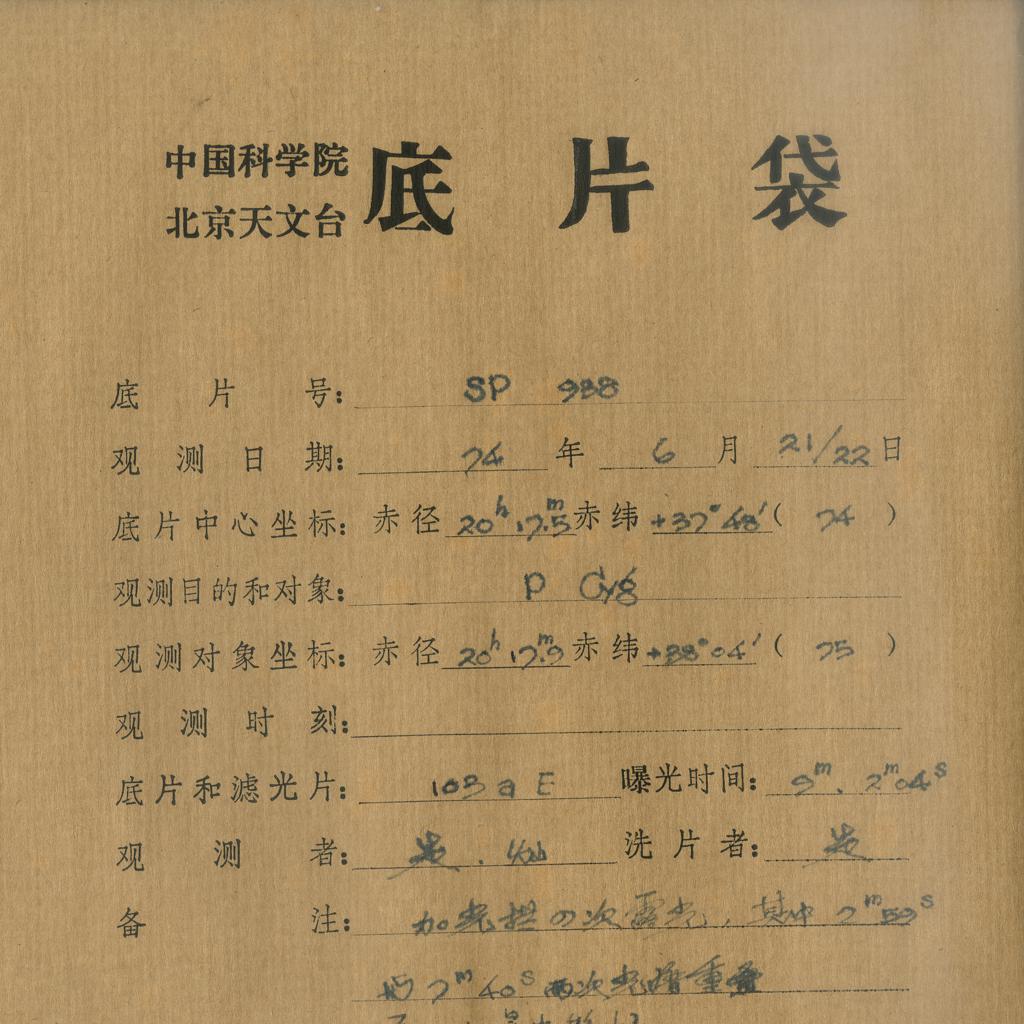 中国科学院
北京天文台
底片袋
底片号: SP 988
观测日期: 74年 6月 21/22日
底片中心坐标: 赤径 20h 17m.5 赤纬 +37°48′ ( 74 )
观测目的和对象: P Cyg
观测对象坐标: 赤径 20h 17m.9 赤纬 +38°04′ ( 75 )
观测时刻:
底片和滤光片: 103 a E 曝光时间: 9m. 2m04s
观测者: 洗片者:
备注: 加光栏四次露光,其中 7m59s
与 7m40s 两次光谱重叠